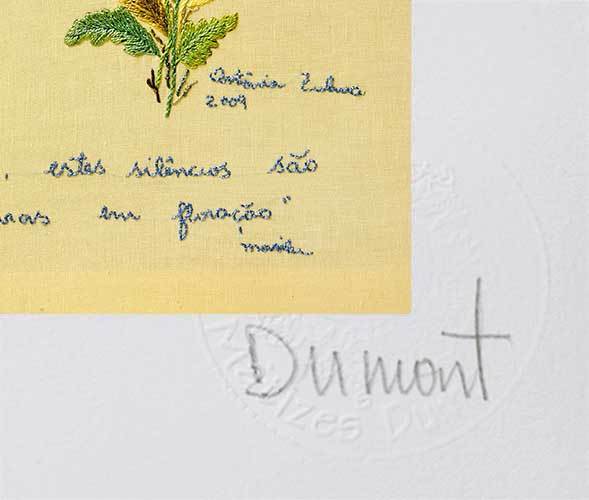 Antônia Zulma
2009
, estes silêncios são
em floração"
marilu
Dumont